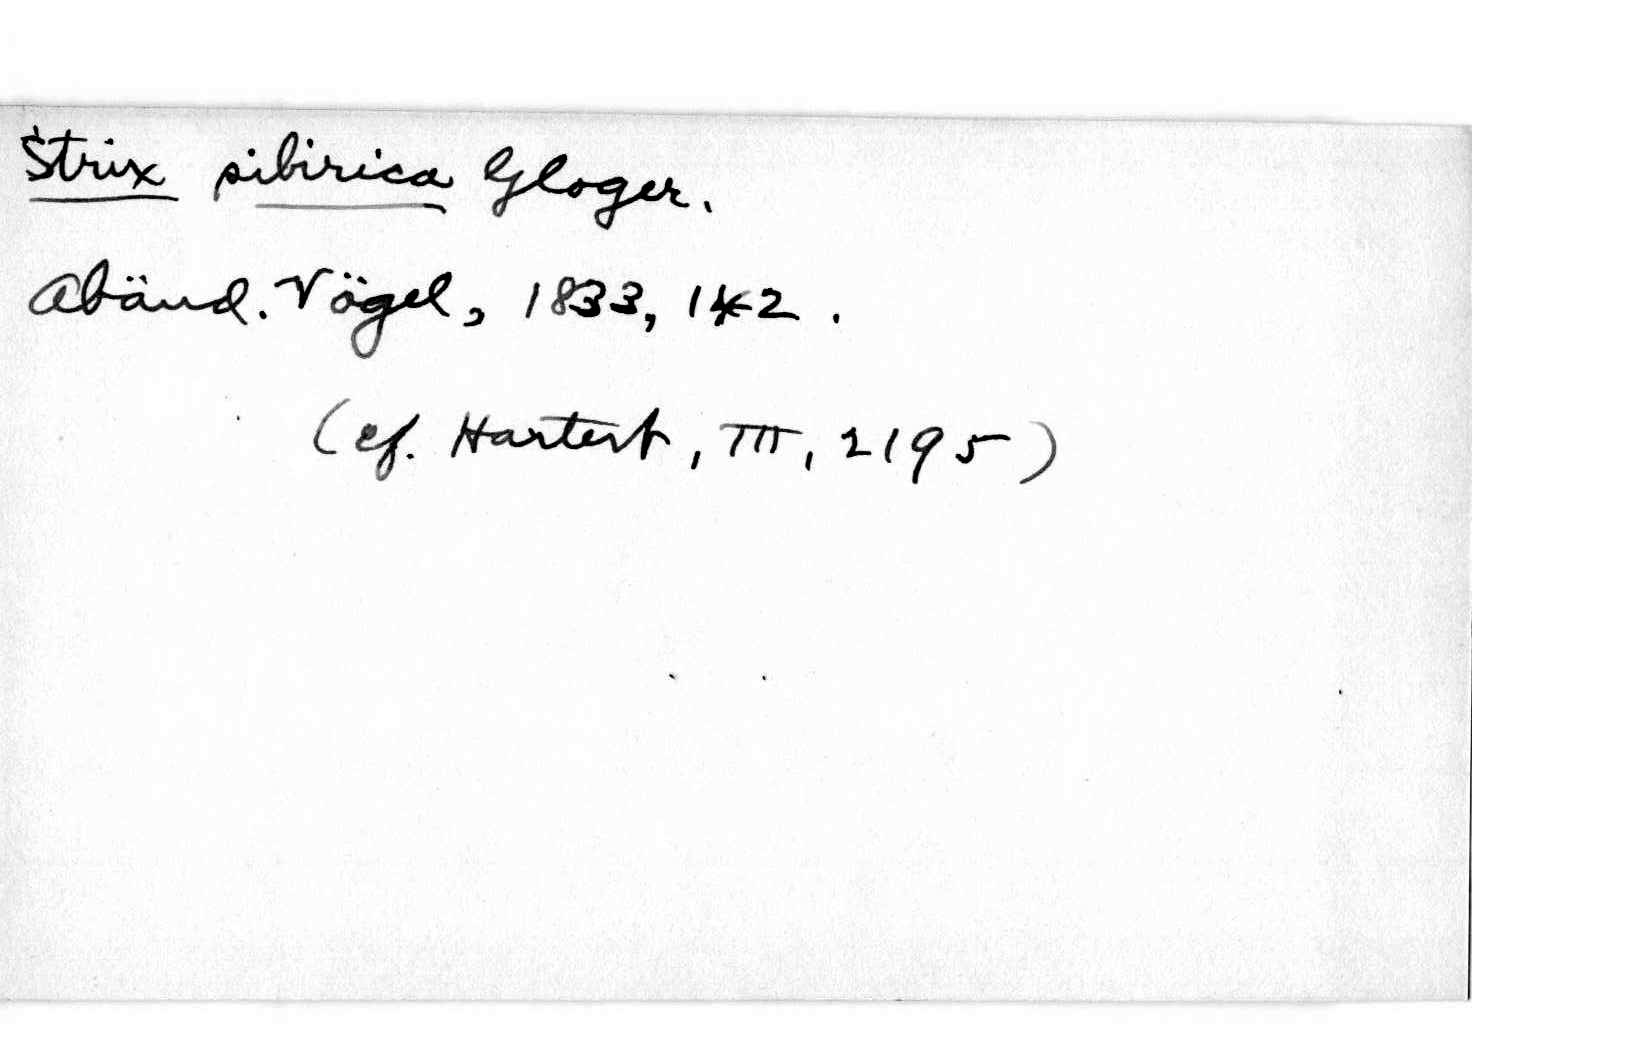 Strix sibirica Gloger.
Abänd. Vögel, 1833, 142.
(cf. Hartert, III, 2195)